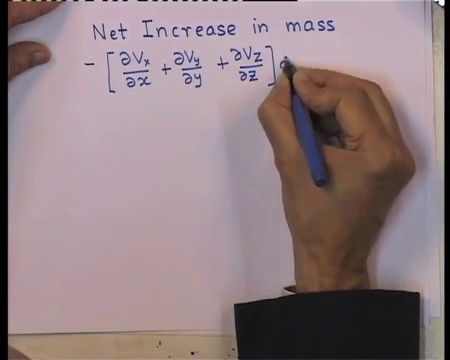 Net Increase in mass
- [ ∂Vx/∂x + ∂Vy/∂y + ∂Vz/∂z ]